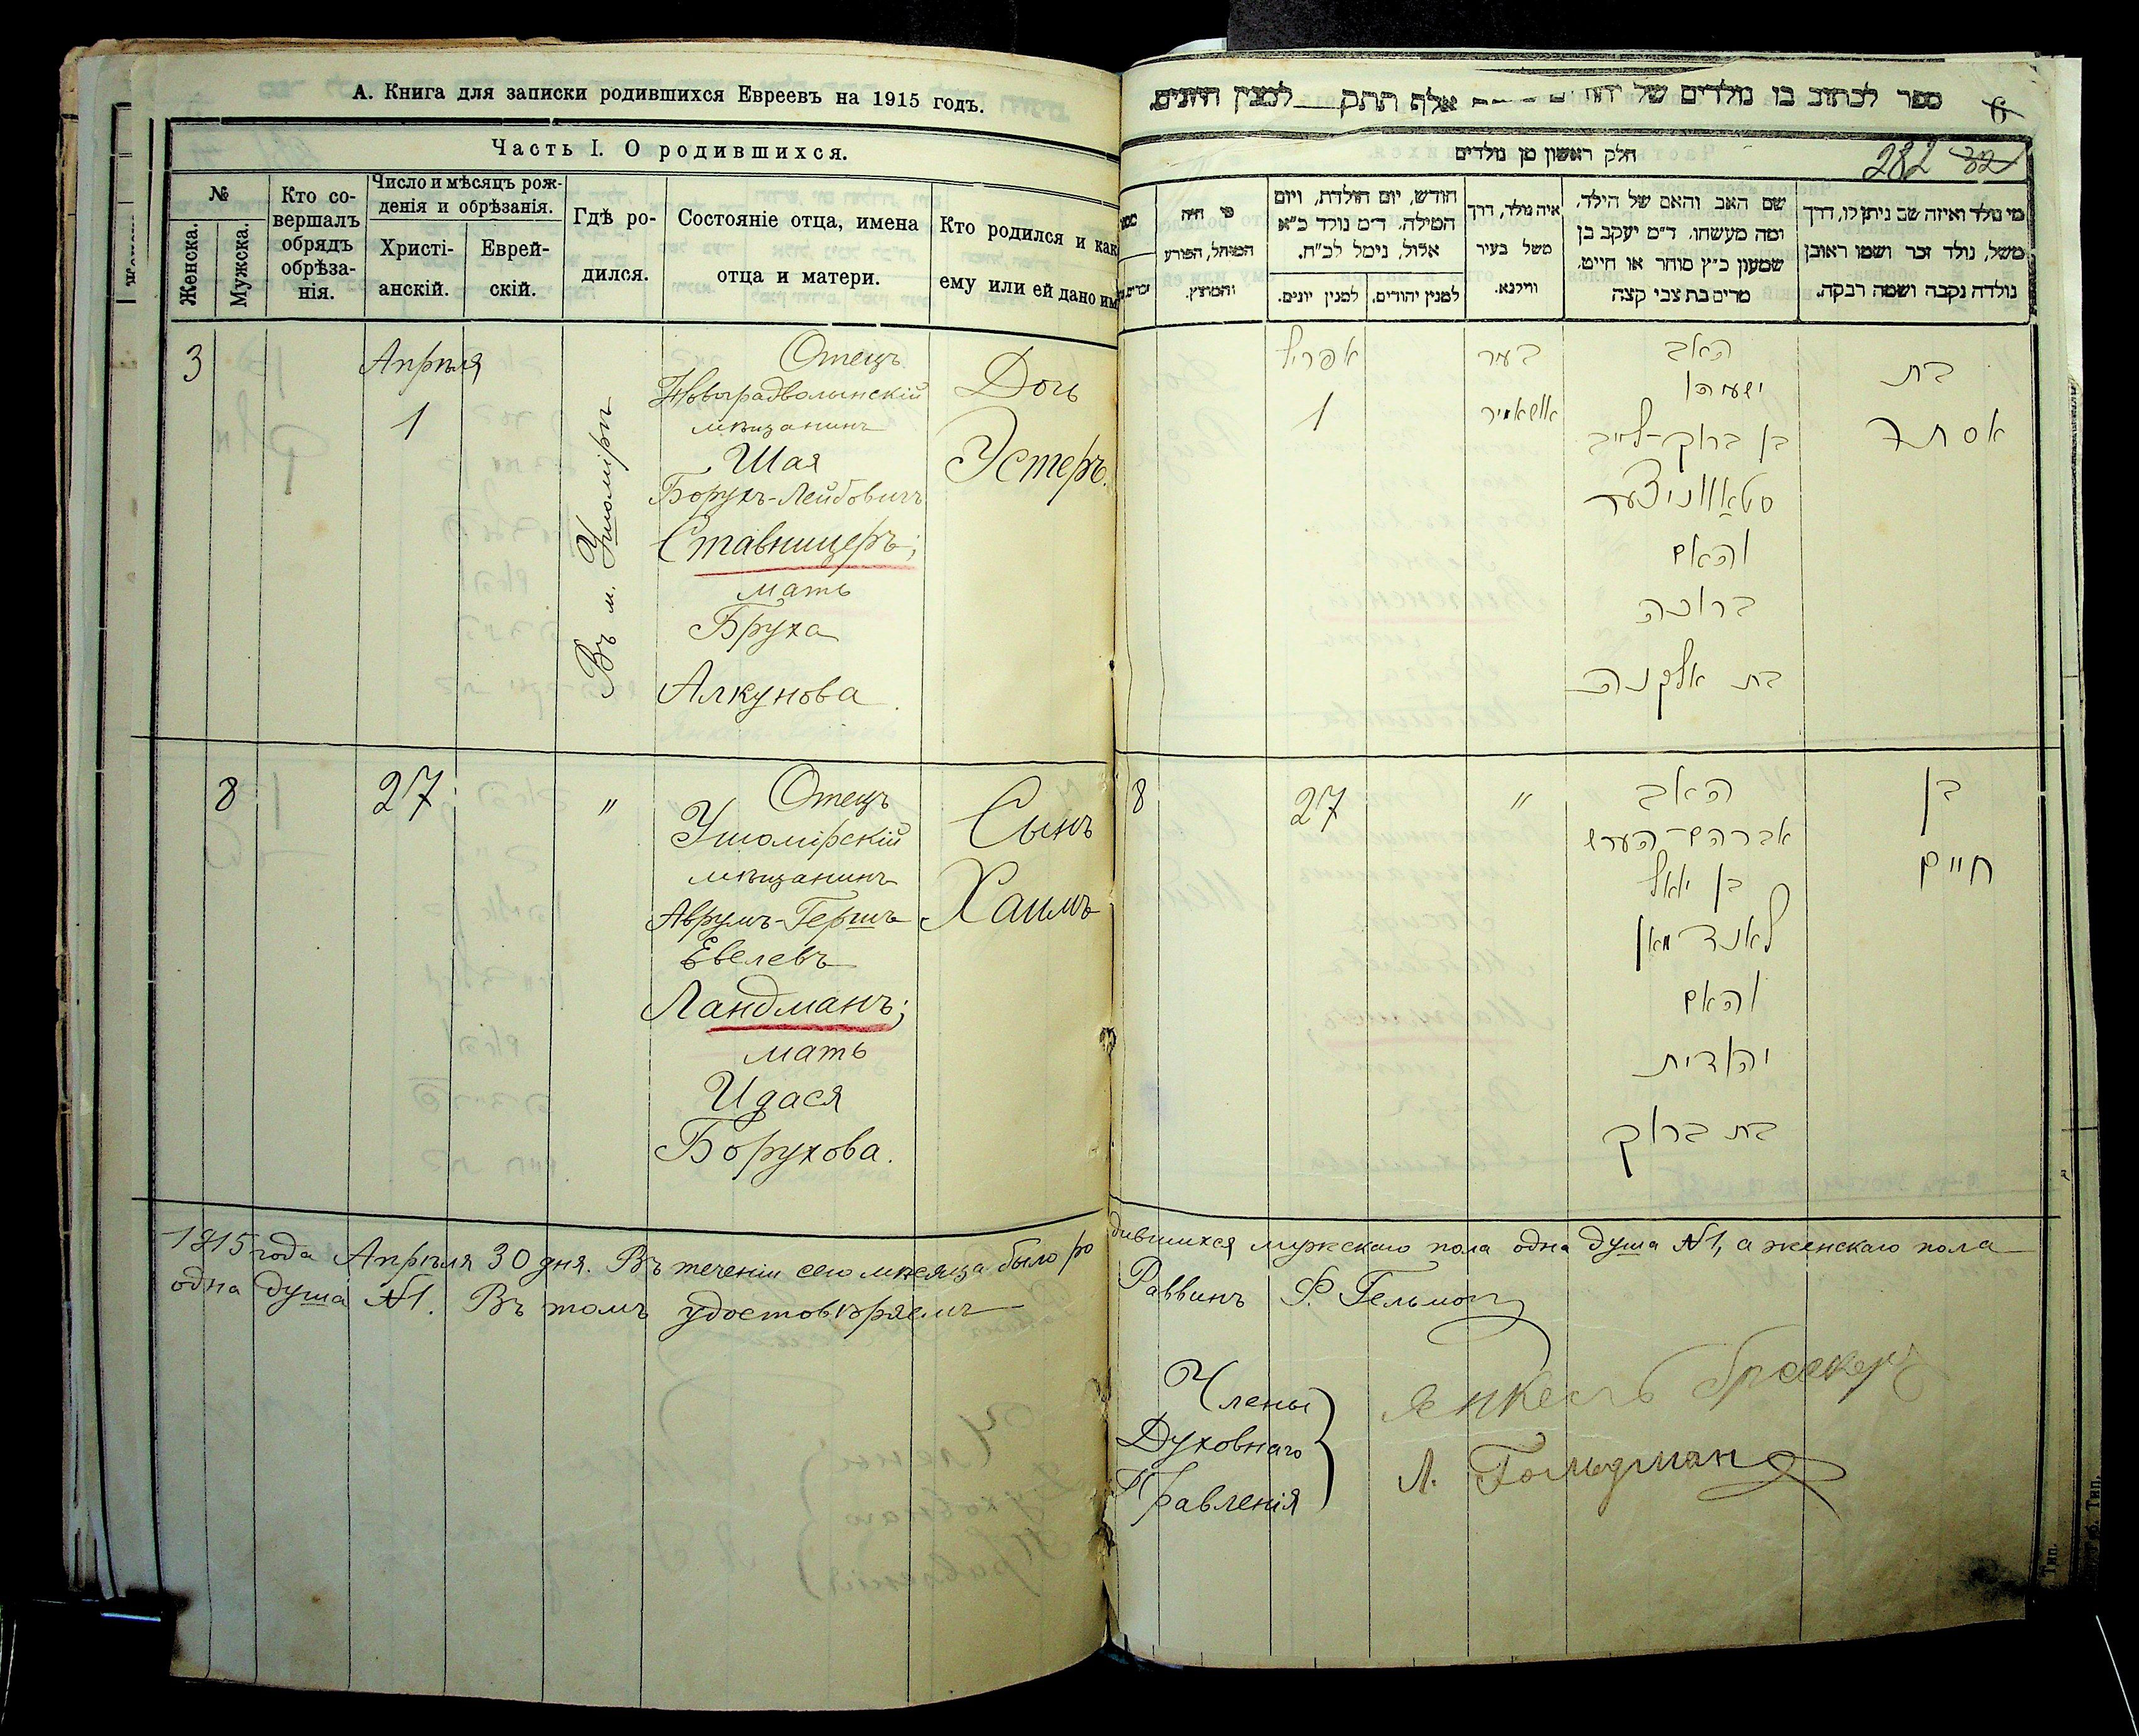 А. Книга для записки родившихся Евреевъ на 1915 годъ.
Часть I. О родившихся.
№
Женска.
Мужска.
Кто со-
вершалъ
обрядъ
обрѣза-
нія.
Число и мѣсяцъ рож-
денія и обрѣзанія.
Христі-
анскій.
Еврей-
скій.
Гдѣ ро-
дился.
Состояніе отца, имена
отца и матери.
Кто родился и как
ему или ей дано им
3
Апрѣля
1
Въ м. Ушомірѣ
Отецъ
Новоградволынскій
мѣщанинъ
Шая
Борухъ-Лейбовичъ
Ставницеръ;
мать
Бруха
Алкунова
Дочь
Эстеръ.
8
27
"
Отецъ
Ушомірскій
мѣщанинъ
Аврумъ-Гершъ
Евелевъ
Ландманъ;
мать
Идася
Борухова.
Сынъ
Хаимъ
1915 года Апрѣля 30 дня. Въ теченіи сего мѣсяца было ро
одна душа №1. Въ томъ удостовѣряемъ
ספר לכתוב בו נולדים של אלף תתק למנין היונים.
6
חלק ראשון מן נולדים
282 32
מי נולד ואיזה שם ניתן לו, דרך
משל, נולד זכר ושמו ראובן
נולדה נקבה ושמה רבקה.
שם האב והאם של הילד,
ומה מעשהו. ד"מ יעקב בן
שמעון כ"ץ סוחר או חייט,
מרים בת צבי קצה
איה נולד, דרך
משל בעיר
ווילנא.
חודש, יום הולדת, ויום
המילה. ד"מ נולד כ"א
אלול, נימל לכ"ח.
למנין יהודים.
למנין יונים.
מי היה
המוהל, הפורע
והמוצץ.
בת
אסתר
האב
ישעיהו
בן ברוך-לייב
סטאווניצער
והאם
ברוכה
בת אלקנה
בעיר
אושאמיר
אפריל
1
בן
חיים
האב
אברהם-הערש
בן יואל
לאנדמאן
והאם
יהודית
בת ברוך
"
27
8
дившихся мужскаго пола одна душа №1, а женскаго пола
Раввинъ Ф. Гельман
Члены
Духовнаго
Правленія
Янкель
Л. Гольдман